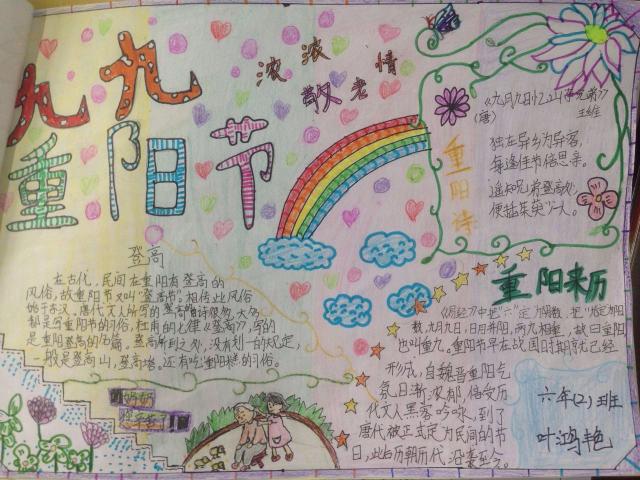 九九
重阳节
浓浓
敬老情
《九月九日忆山东兄弟》
(唐) 王维
独在异乡为异客,
每逢佳节倍思亲。
遥知兄弟登高处,
便插茱萸少一人。
重阳诗
登高
在古代,民间在重阳有登高的
风俗,故重阳节又叫“登高节”。相传此风俗
始于东汉。唐代文人所写的登高诗很多,大多
都是写重阳节的习俗,杜甫的七律《登高》,写的
是重阳登高的名篇。登高所到之处,没有划一的规定,
一般是登高山,登高塔。还有吃“重阳糕”的习俗。
重阳来历
把“九”定为阳数,
九月九日,日月并阳,两九相重,故曰重阳
也叫重九。重阳节早在战国时期就已经
形成,自魏晋重阳气
氛日渐浓郁,倍受历
代文人墨客吟咏,到了
唐代被正式定为民间的节
日,此后历朝历代沿袭至今。
六年(2)班
叶鸿艳